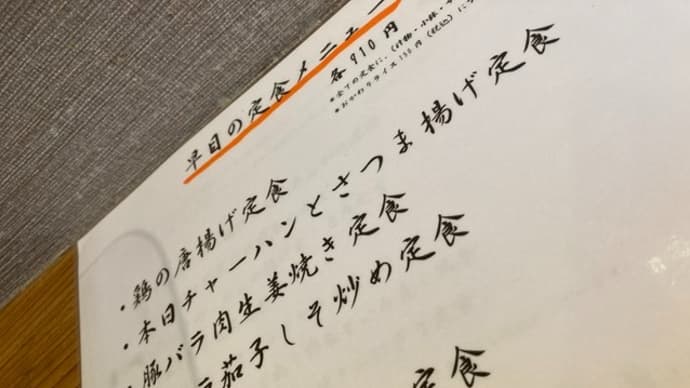 平日の定食メニュー
各910円
*全ての定食に、(汁物・小鉢・
*おかわりライス100円(税込)にな
・鶏の唐揚げ定食
・本日チャーハンとさつま揚げ定食
・豚バラ肉生姜焼き定食
茄子しそ炒め定食
定食